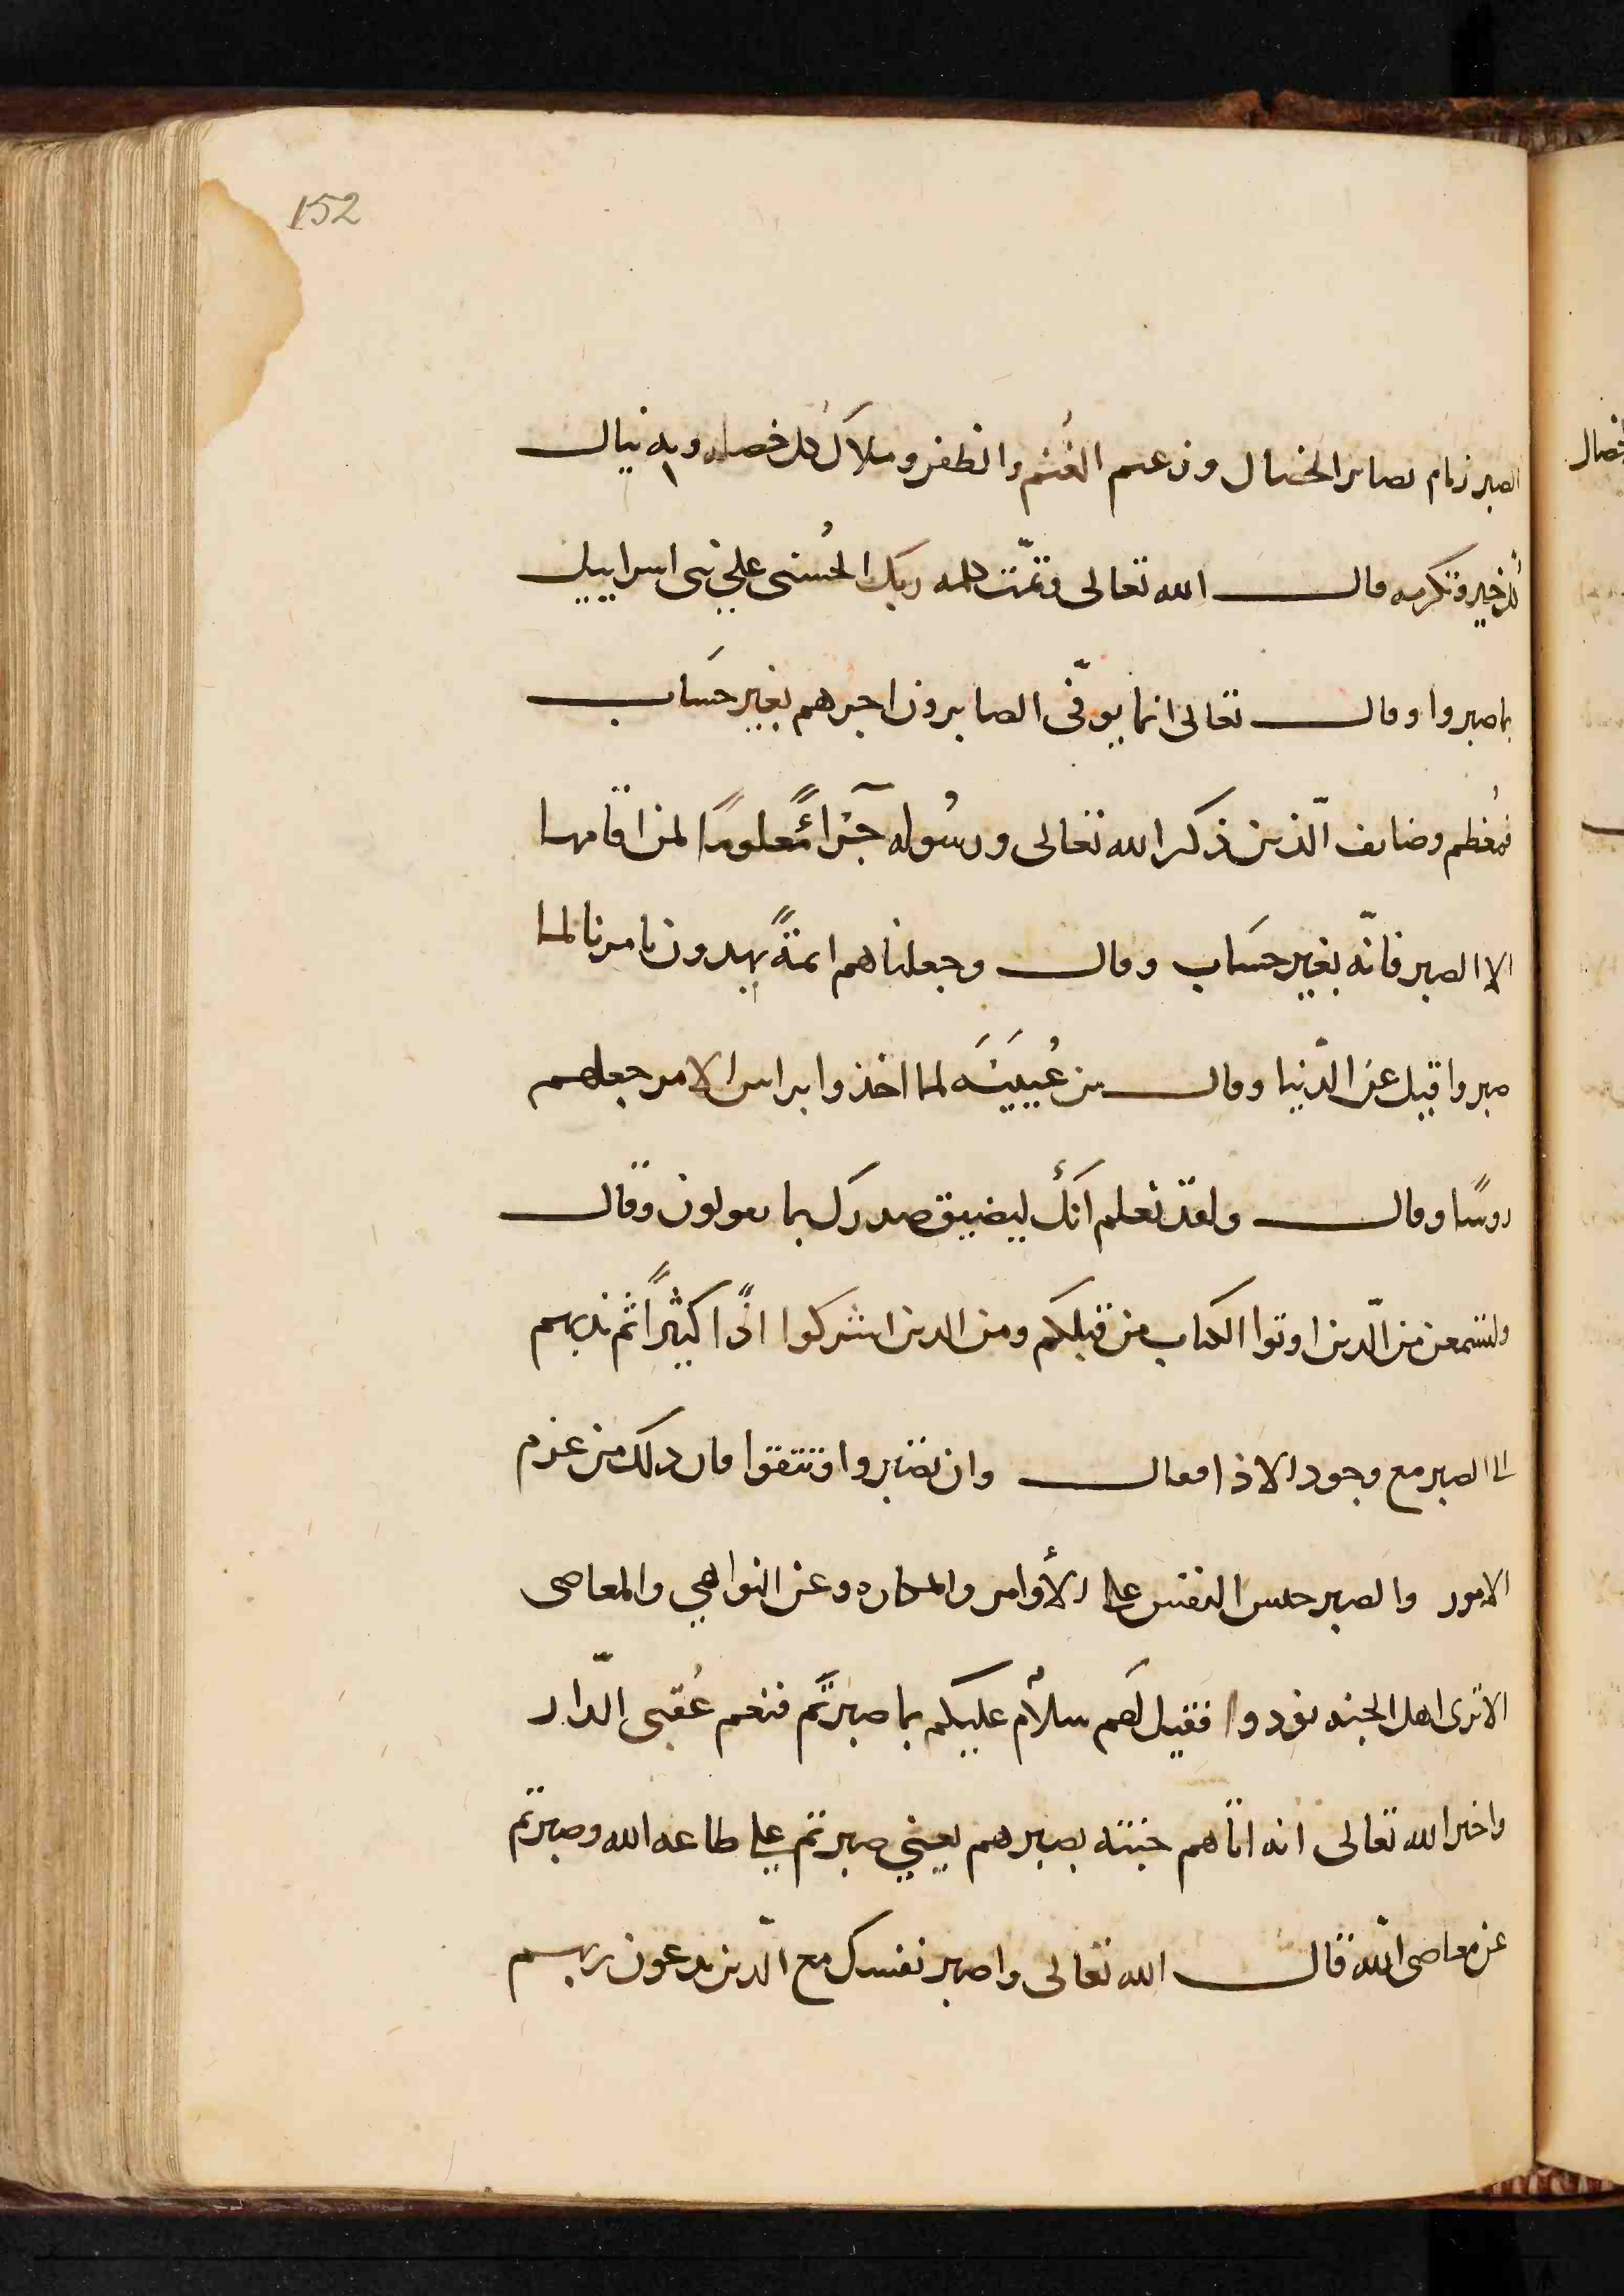 152
الصبر زمام لصابر الخصال وزعيم الغُنم والظفر وملاَك كل خصله وبه ينال
كل خير وتكرمه قال الله تعالى وتمّت كلمه ربك الحُسنى علي بنى اسراييل
بما صبروا وقال تعالى انما يوفّى الصابرون اجرهم بغير حسَاب
فمُعظم وضايف الّذين ذكر الله تعالى ورسُوله جزآءً معلومًا لمن اقامها
الا الصبر فانّه بغير حسَاب وقال وجعلناهم ايمةً يهدون بامرنا لما
صبروا قيل عن الدّنيا وقال بن عُيَيْنَه لما اخذوا براس الامر جعلهم
روسًا وقال ولقد نعلم أنَك ليضيق صدرك بما يقولون وقال
ولتسمعن من الّذين اوتوا الكتاب من قبلكم ومن الذين اشركوا اذًا كثيراً ثم ندبهم
الى الصبر مع وجود الاذا فقال وان تصبروا وتتقوا فان ذلك من عزم
الامور والصبر حبس النفس على الأوامر والمكاره وعن النواهي والمعاصى
الا ترى اهل الجنه نودوا فقيل لهَم سلاٌم عليكم بما صبرتَم فنعم عُقبى الدّار
واخبر الله تعالى انه اتاهم جنته بصبرهم يعني صبرتم على طاعه الله وصبرتم
عن معاصى الله قال الله تعالى واصبر نفسك مع الّذين يدعون ربهم
خصال